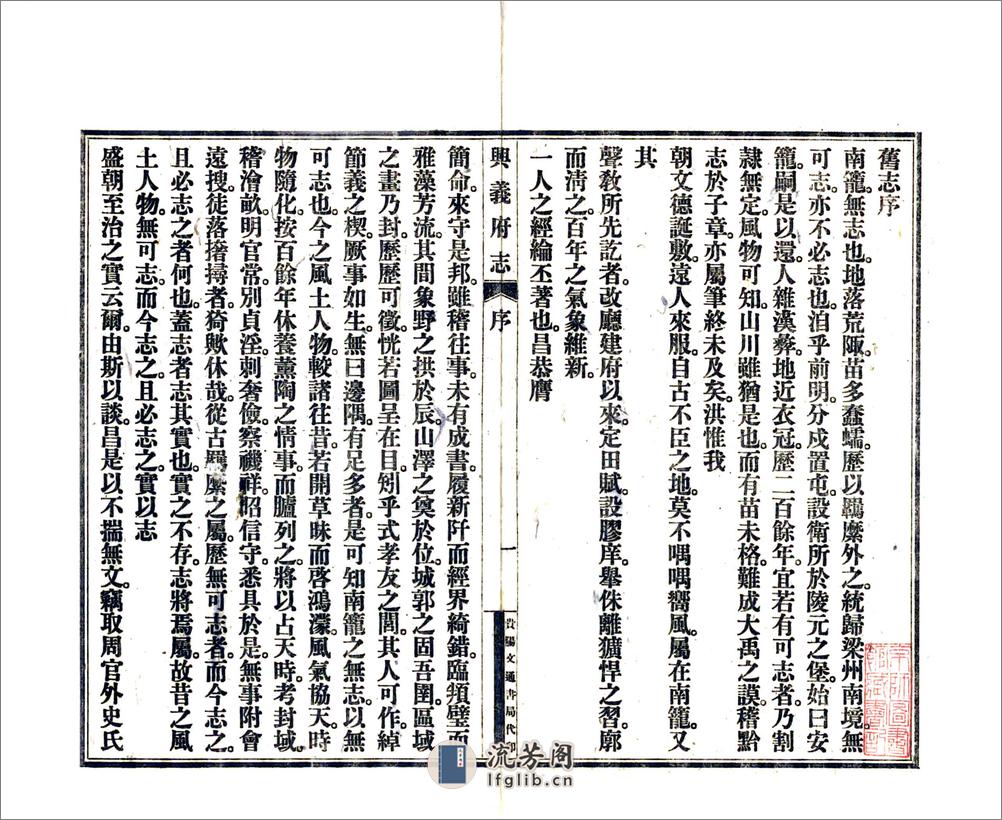 舊志序
南籠無志也。地落荒陬。苗多蠢蠕。歷以羈縻外之。統歸梁州南境。無
可志。亦不必志也。洎乎前明。分戍置屯。設衛所於陵元之堡。始曰安
籠。嗣是以還。人雜漢彝。地近衣冠。歷二百餘年。宜若有可志者。乃割
隸無定。風物可知。山川雖猶是也。而有苗未格。難成大禹之謨。稽黔
志於子章。亦屬筆終未及矣。洪惟我
朝文德誕敷。遠人來服。自古不臣之地。莫不喁喁嚮風。屬在南籠。又
其
聲教所先訖者。改廳建府以來。定田賦。設膠庠。舉侏離獷悍之習。廓
而清之。百年之氣象維新。
一人之經綸丕著也。昌恭膺
興義府志
序
一
貴陽文通書局代印
簡命。來守是邦。雖稽往事。未有成書。履新阡而經界綺錯。臨頖璧而
雅藻芳流。其間象野之拱於辰。山澤之奠於位。城郭之固吾圉。區域
之畫乃封。歷歷可徵。恍若圖呈在目。矧乎式孝友之閭。其人可作。綽
節義之楔。厥事如生。無曰邊隅。有足多者。是可知南籠之無志。以無
可志也。今之風土人物。較諸往昔。若開草昧而啓鴻濛。風氣協天。時
物隨化。按百餘年休養薰陶之情事。而臚列之。將以占天時。考封域。
稽澮畝。明官常。別貞淫。剌奢儉。察禨祥。昭信守。悉具於是。無事附會
遠搜。徒落撦撏者。猗歟休哉。從古羈縻之屬。歷無可志者。而今志之。
且必志之者何也。蓋志者志其實也。實之不存。志將焉屬。故昔之風
土人物。無可志。而今志之。且必志之。實以志
盛朝至治之實云爾。由斯以談。昌是以不揣無文。竊取周官外史氏
流芳阁
lfglib.cn